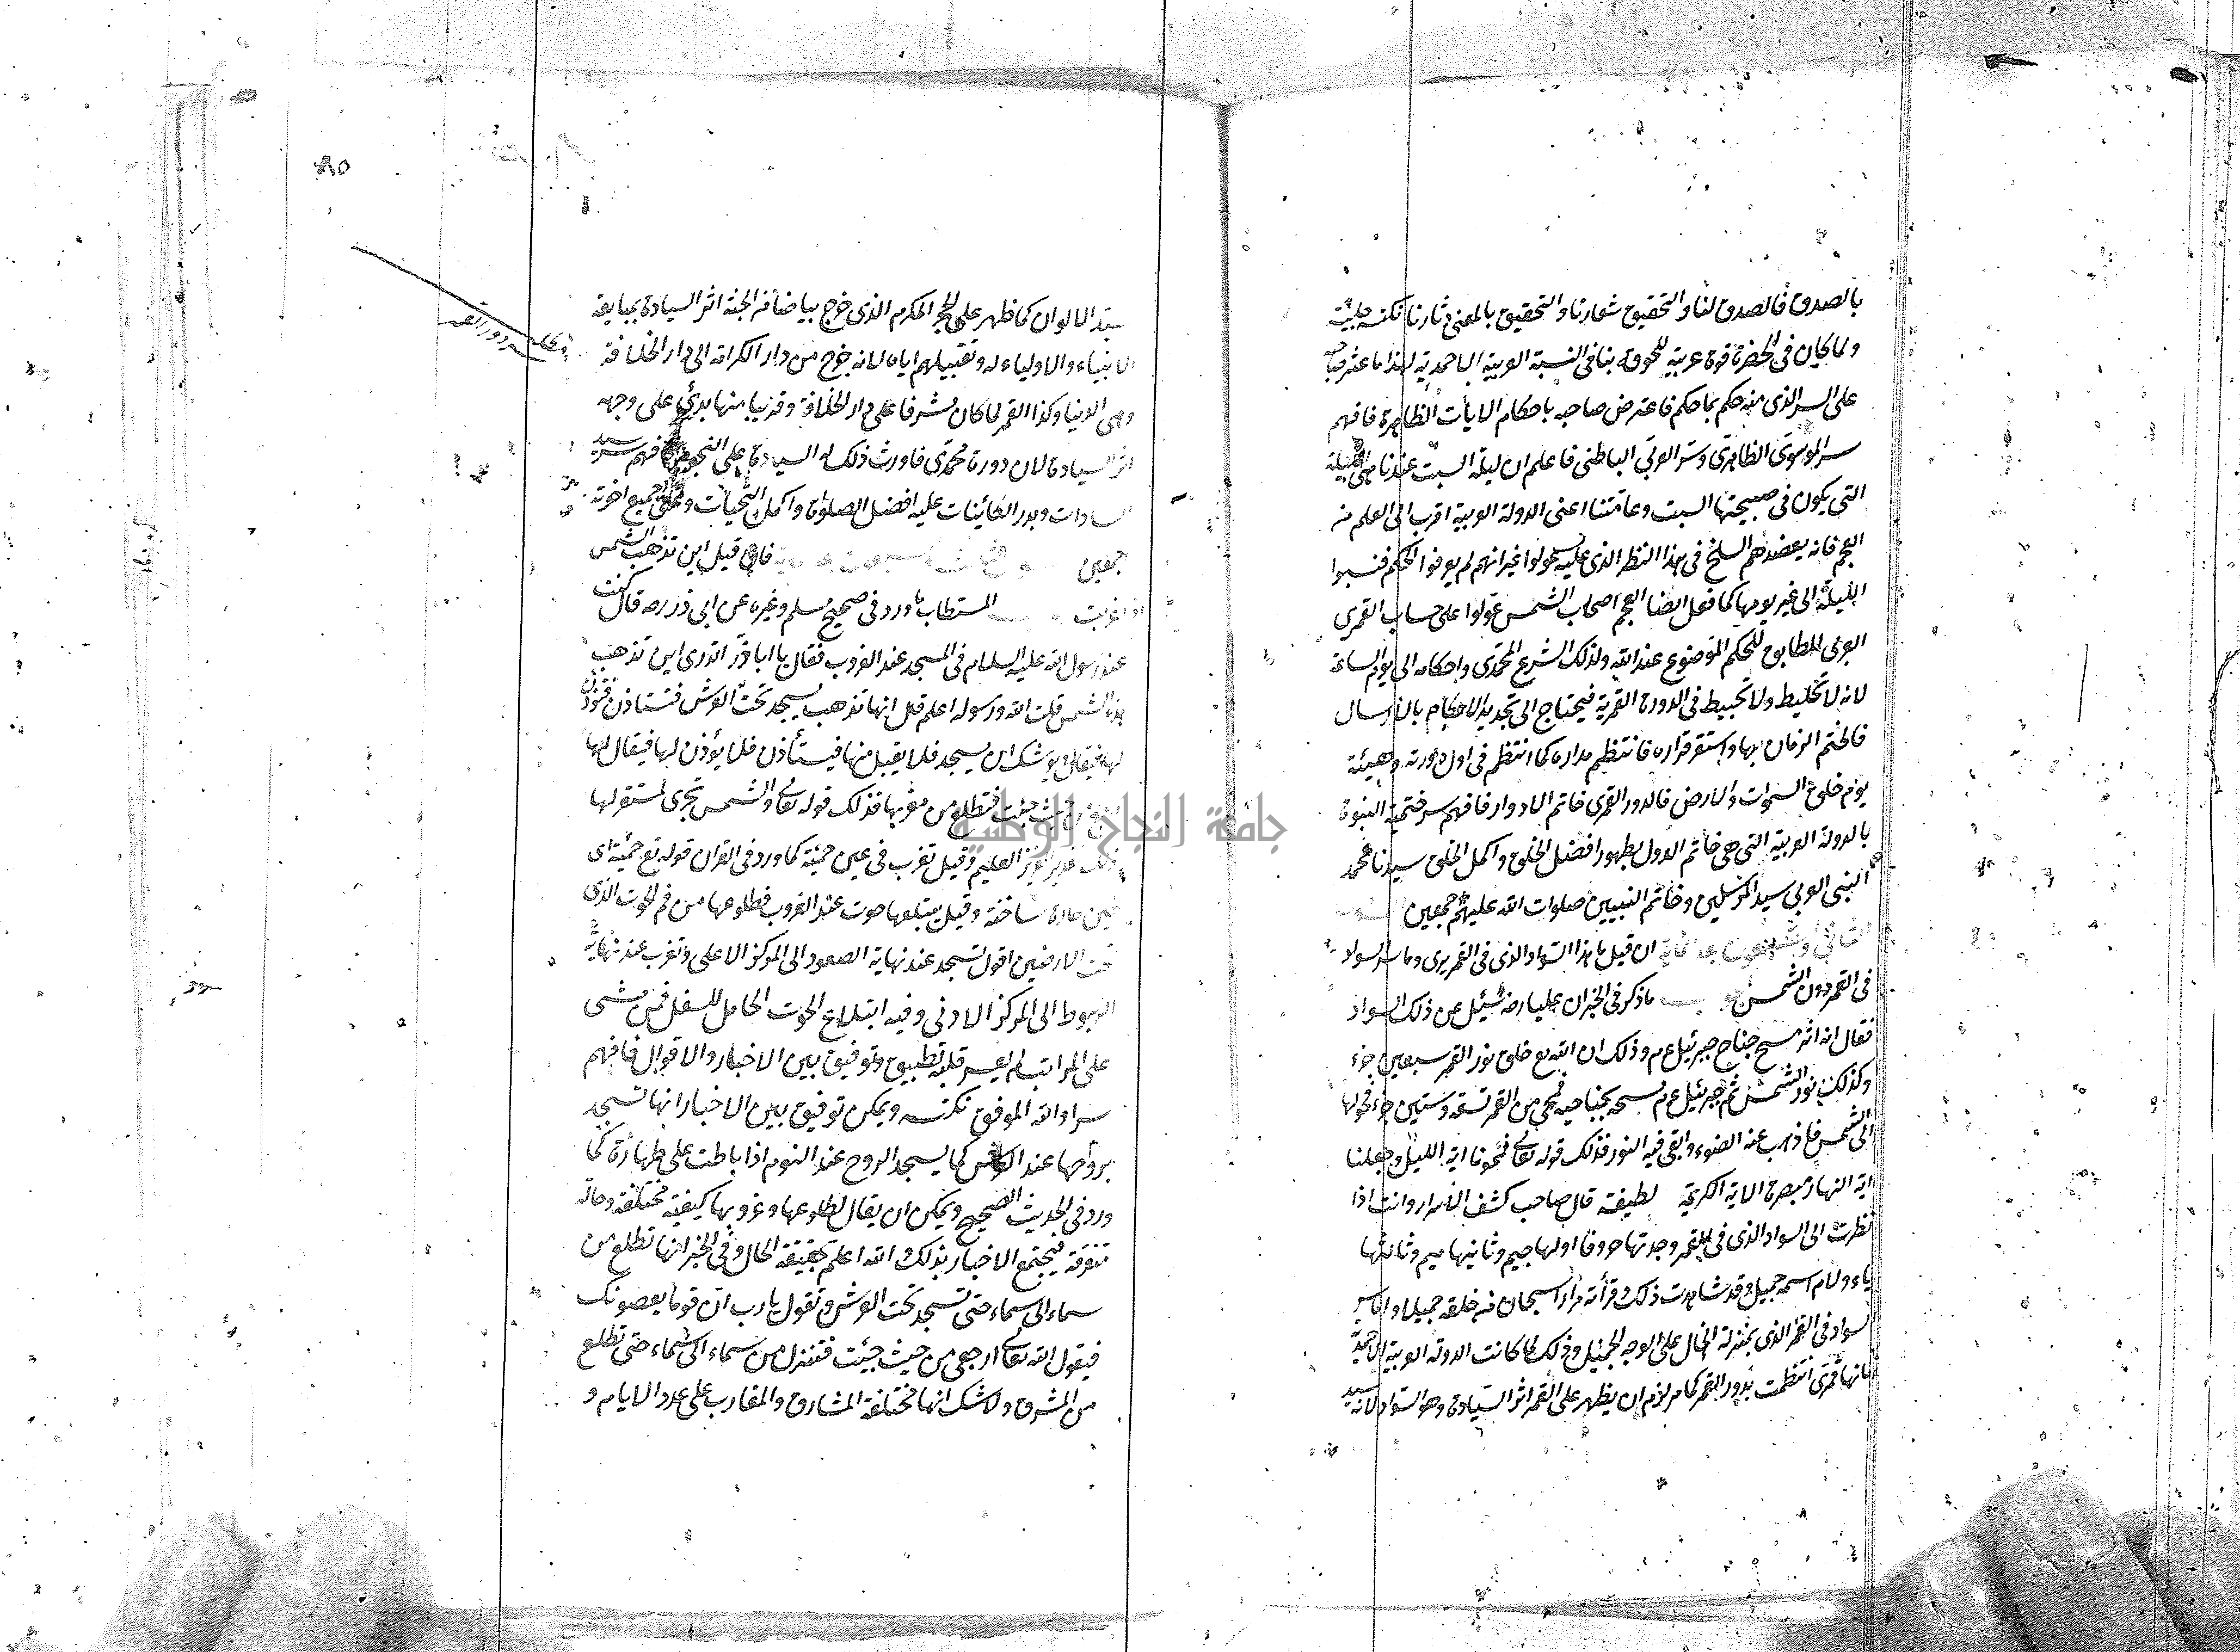 بالصدق فالصدق لنا والتحقيق شعارنا والتحقيق بالمعنى دثارنا نكتة جلية
ولما كان فى الخضرة قوة عربية للحوقه بنا فى النسبة العربية الاحمدية لهذا ما عثر صاحبه
على السر الذى منه حكم بما حكم فاعترض صاحبه باحكام الايات الظاهرة فافهم
سر الموسوى الظاهرى وسر العربى الباطنى فاعلم ان ليلة السبت عندنا هى الليلة
التى يكون فى صبيحتها السبت وعامتنا اعنى الدولة العربية اقرب الى العلم من
العجم فانه يعضدهم السلخ فى هذا النظر الذى عليه يعولوا غير انهم لم يعرفوا الحكم فنسبوا
الليلة الى غير يومها كما فعل ايضا العجم اصحاب الشمس عولوا على حساب القمرى
العربى المطابق للحكم الموضوع عند الله ولذلك الشرع المحمدى واحكامه الى يوم الساعة
لانه لا تخليط ولا تخبيط فى الدورة القمرية فيحتاج الى تجديد الاحكام بالارسال
فالختم الزمان بها واستقر قراره فانتظم مداره كما انتظم فى اول دورته وهيئته
يوم خلق السموات والارض فالدور القمرى خاتم الادوار فافهم سر ختمية النبوة
بالدولة العربية التى هى خاتم الدول بظهور افضل الخلق واكمل الخلق سيدنا محمد
النبى العربى سيد المرسلين وخاتم النبيين صلوات الله عليهم اجمعين
ان قيل ما هذا السواد الذى فى القمر يرى وما سر السواد
فى القمر دون الشمس ما ذكر فى الخبر ان عليا رضه سئل عن ذلك السواد
فقال انه اثر مسح جناح جبرئيل عم وذلك ان الله تع خلق نور القمر سبعين جزء
وكذلك نور الشمس ثم جبرئيل عم مسحه بجناحيه فمحى من القمر تسعة وستين جزء فحولها
الى الشمس فاذهب عنه الضوء وابقى فيه النور فذلك قوله تعالى فمحونا اية الليل وجعلنا
اية النهار مبصرة الاية الكريمة لطيفة قال صاحب كشف الاسرار وانت اذا
نظرت الى السواد الذى فى القمر وجدتها حروفا اولها جيم وثانيها ميم وثالثها
ياء ولام اسمه جميل وقد شاهدت ذلك وقرأته مرارا سبحان من خلقه جميلا واما سر
السواد فى القمر الذى بمنزلة الخال على الوجه الجميل وذلك لما كانت الدولة العربية الاحمدية
فانها قمرى انتظمت بدور القمر كما مر لزم ان يظهر على القمر اثر السيادة وهو السواد لانه سيد
٨٥
سيد الالوان كما ظهر على الحجر المكرم الذى خرج بياضا من الجنة اثر السيادة بمبايعة
الانبياء والاولياء له وتقبيلهم اياه لانه خرج من دار الكرامة الى دار الخلافة
وهى الدنيا وكذا القمر لما كان مشرفا على دار الخلافة وقريبا منها بدئ على وجهه
اثر السيادة لان دورة محمدى فاورث ذلك له السيادة على النجوم فافهم سر سيد
السادات وبدر الكائينات عليه افضل الصلوة واكمل التحيات وعلى جميع اخوته
اجمعين فان قيل اين تذهب الشمس
اذا غربت المستطاب ما ورد فى صحيح مسلم وغيره عن ابى ذر رضه قال كنت
عند رسول الله عليه السلام فى المسجد عند الغروب فقال يا ابا ذر اتدرى اين تذهب
هذه الشمس قلت الله ورسوله اعلم قال انها تذهب تسجد تحت العرش فتستاذن فتؤذن
لها فيقال ويوشك ان يسجد فلا يقبل منها فيستأذن فلا يؤذن لها فيقال لها
ارجعى من حيث جئت فتطلع من مغربها فذلك قوله تعالى والشمس تجرى لمستقر لها
ذلك تقدير العزيز العليم وقيل تغرب فى عين حمئة كما ورد فى القران قوله تع حمئة اى
عين حارة ساخنة وقيل يبتلعها حوت عند الغروب فطلوعها من فم الحوت الذى
تحت الارضين اقول تسجد عند نهاية الصعود الى المركز الاعلى وتغرب عند نهاية
الهبوط الى المركز الادنى وفيه ابتلاع الحوت الحامل للسفل فمن مشى
على المراتب لم يعسر قلبه تطبيق وتوفيق بين الاخبار والاقوال فافهم
سرا والله الموفق نكتة ويمكن توفيق بين الاخبار انها تسجد
بروحها عند العرش كما يسجد الروح عند النوم اذا باتت على طهارة كما
ورد فى الحديث الصحيح ويمكن ان يقال لطلوعها وغروبها كيفية مختلفة وحالة
متفرقة فيجتمع الاخبار بذلك والله اعلم بحقيقة الحال وفى الخبر انها تطلع من
سماء الى سماء حتى تسجد تحت العرش وتقول يا رب ان قوما يعصونك
فيقول الله تعالى ارجعى من حيث جيئت فتنزل من سماء الى سماء حتى تطلع
من المشرق ولا شك انها مختلفة المشارق والمغارب على عدد الايام و
جامعة النجاح الوطنية